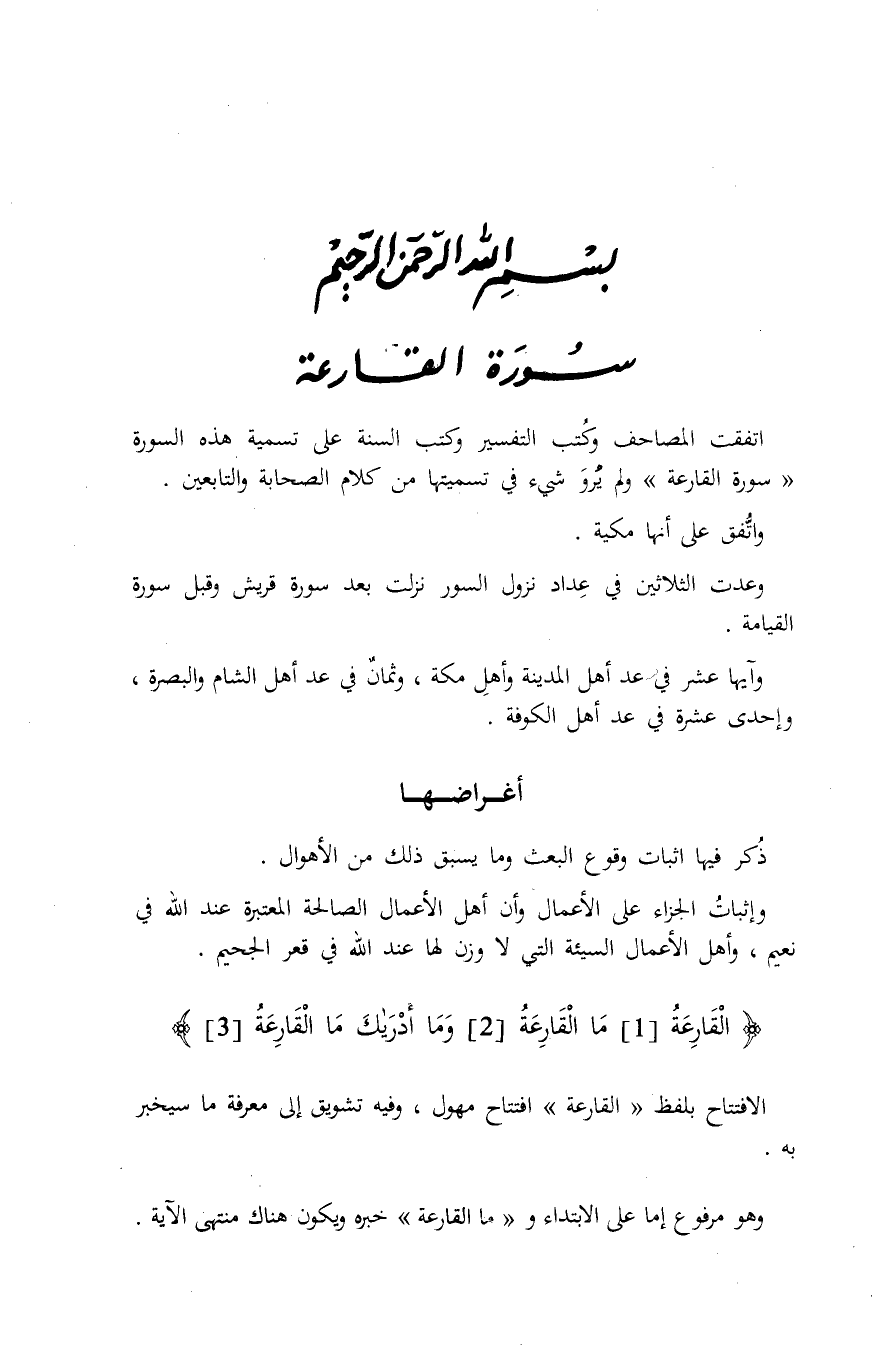 بِسْمِ اللهِ الرَّحْمَنِ الرَّحِيْمِ
سُورَة القارعة
اتفقت المصاحف وكُتب التفسير وكتب السنة على تسمية هذه السورة
« سورة القارعة » ولم يُروَ شيء في تسميتها من كلام الصحابة والتابعين .
واتُّفق على أنها مكية .
وعدت الثلاثين في عِداد نزول السور نزلت بعد سورة قريش وقبل سورة
القيامة .
وآيها عشر في عد أهل المدينة وأهلِ مكة ، وثمانٌ في عد أهل الشام والبصرة ،
وإحدى عشرة في عد أهل الكوفة .
أغراضها
ذُكر فيها اثبات وقوع البعث وما يسبق ذلك من الأهوال .
وإثباتُ الجزاء على الأعمال وأن أهل الأعمال الصالحة المعتبرة عند الله في
نعيم ، وأهل الأعمال السيئة التي لا وزن لها عند الله في قعر الجحيم .
﴿ الْقَارِعَةُ [1] مَا الْقَارِعَةُ [2] وَمَا أَدْرَيٰكَ مَا الْقَارِعَةُ [3] ﴾
الافتتاح بلفظ « القارعة » افتتاح مهول ، وفيه تشويق إلى معرفة ما سيخبر
به .
وهو مرفوع إما على الابتداء و « ما القارعة » خبره ويكون هناك منتهى الآية .